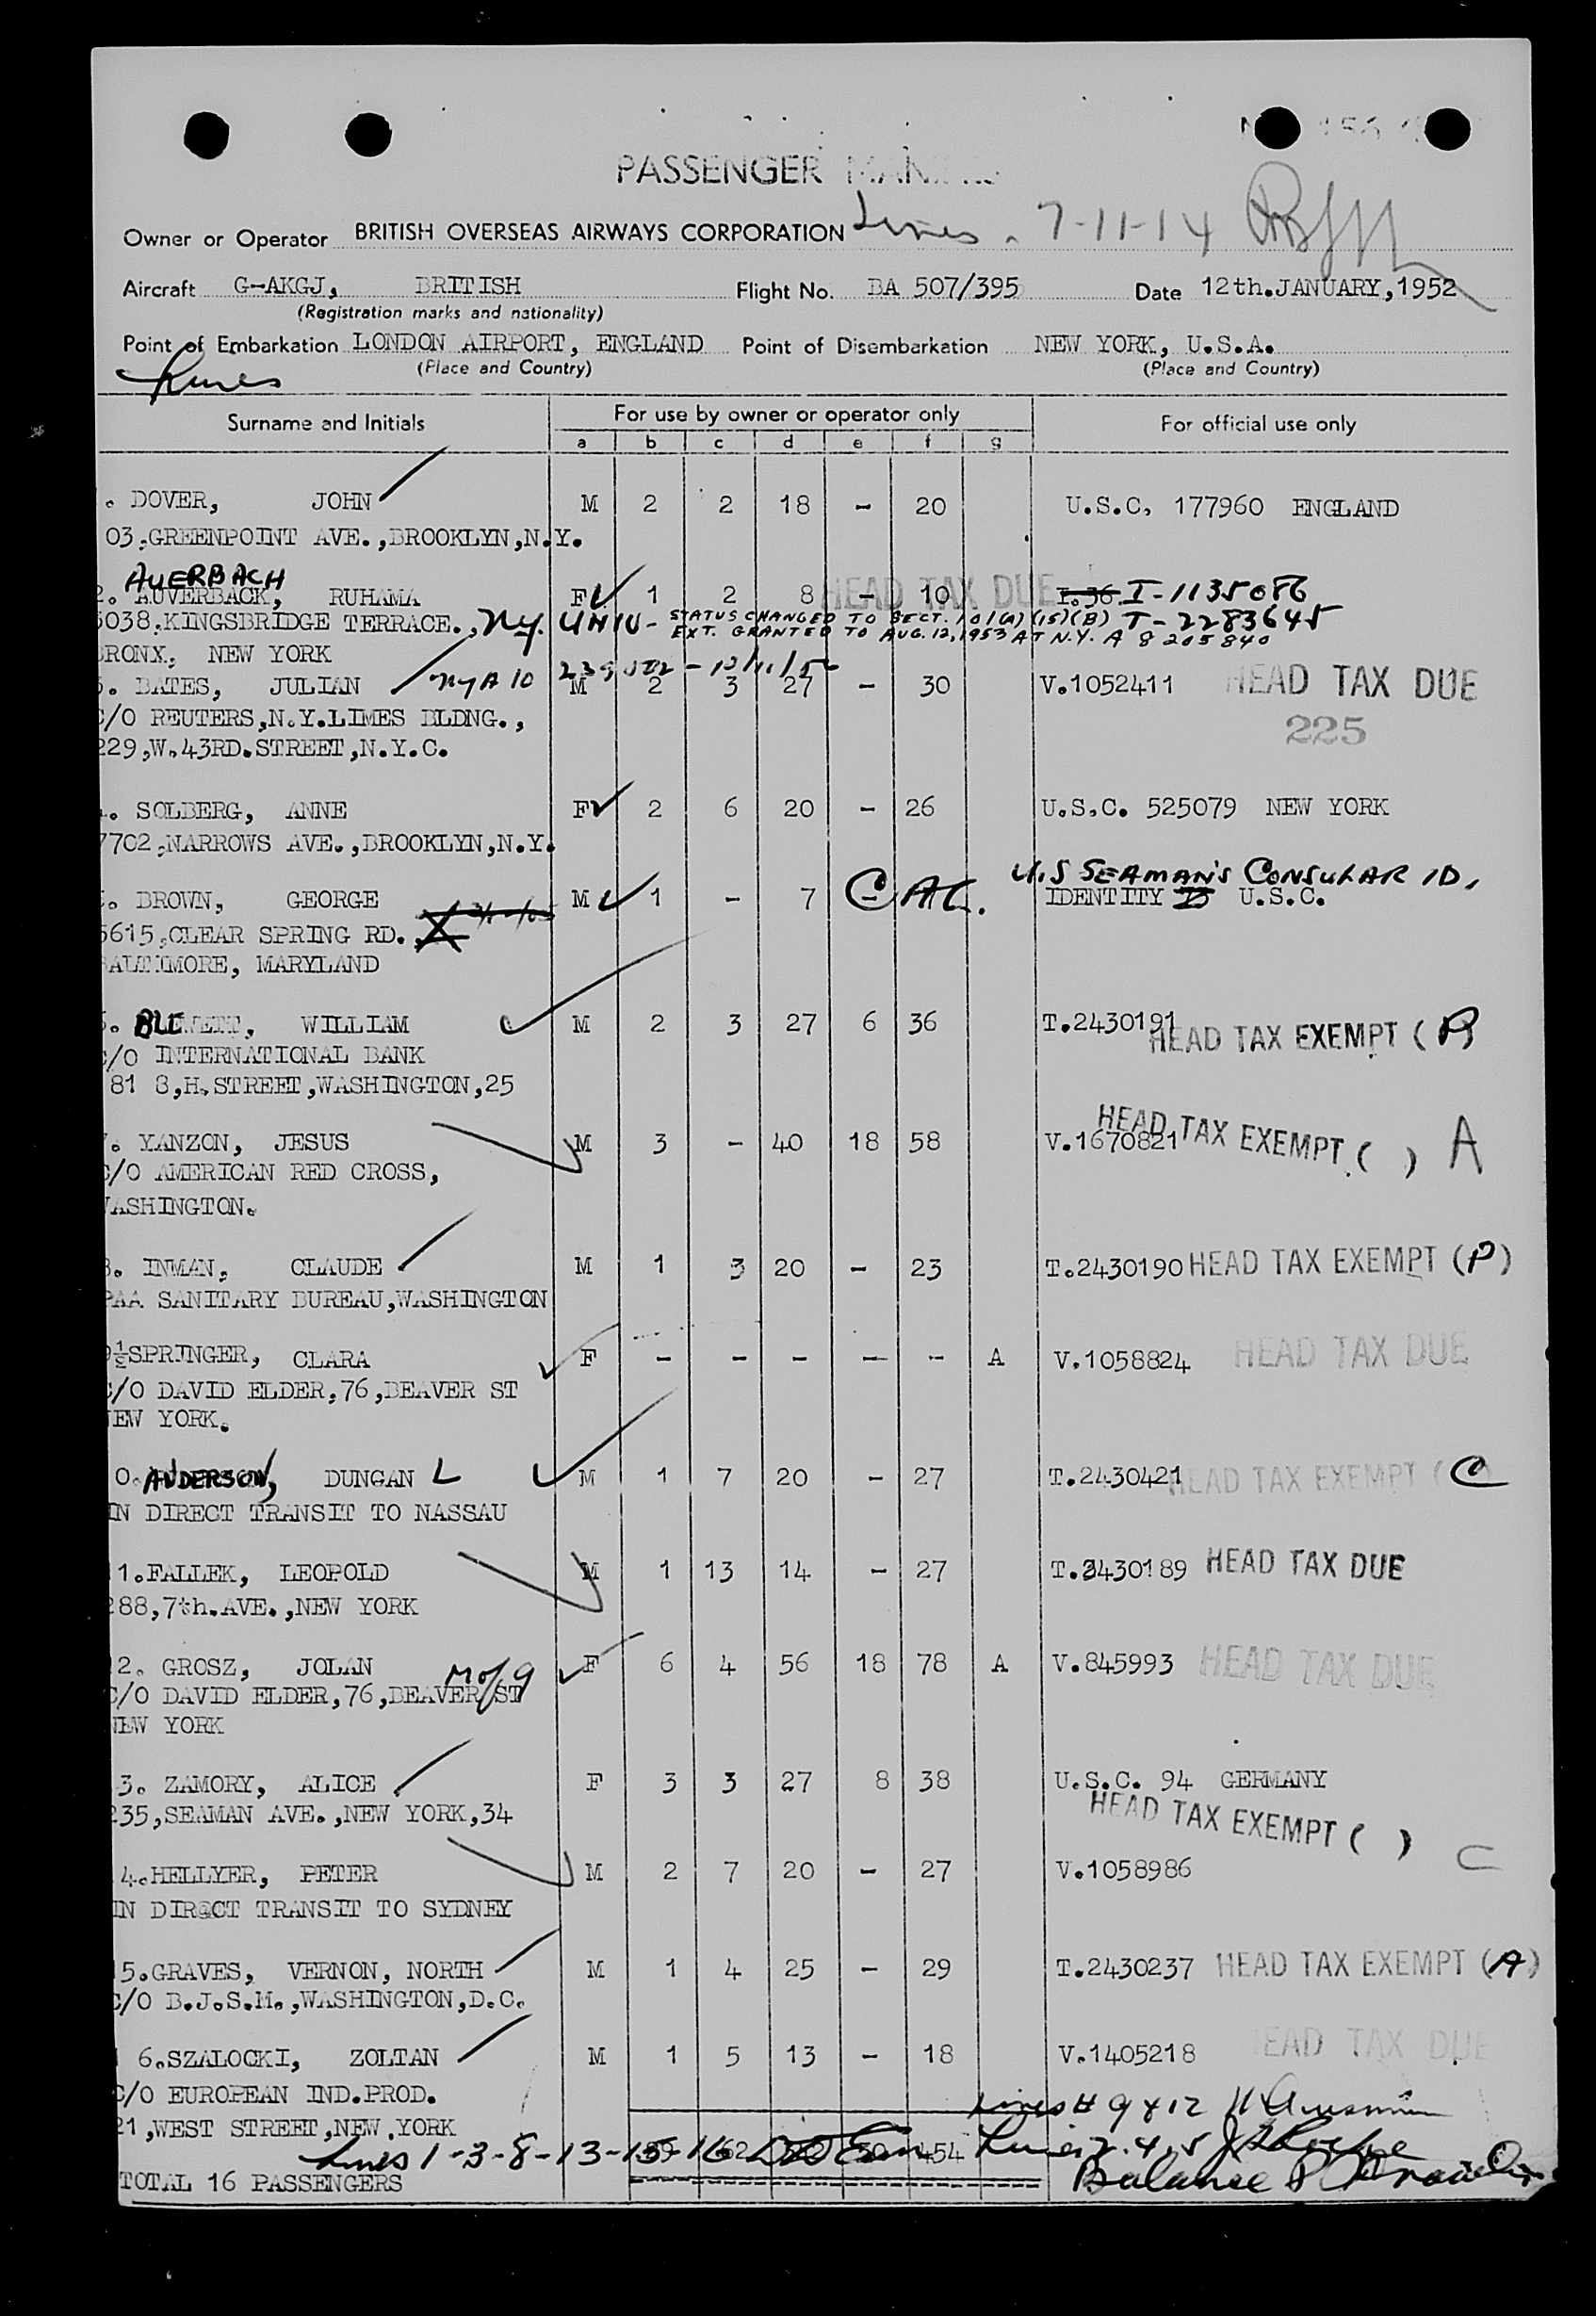 PASSENGER
Owner or Operator BRITISH OVERSEAS AIRWAYS CORPORATION Lines. 7-11-14
Aircraft G-AKGJ, BRITISH Flight No. BA 507/395 Date 12th.JANUARY,1952
(Registration marks and nationality)
Point of Embarkation LONDON AIRPORT, ENGLAND Point of Disembarkation NEW YORK, U.S.A.
(Place and Country) (Place and Country)
Surname and Initials For use by owner or operator only For official use only
a b c d e f g
. DOVER, JOHN M 2 2 18 - 20 U.S.C. 177960 ENGLAND
03,GREENPOINT AVE.,BROOKLYN,N.Y.
AUERBACH
2. AUVERBACK, RUHAMA F 1 2 8 - 10 HEAD TAX DUE I.36 I-1135086
5038,KINGSBRIDGE TERRACE., N.Y. STATUS CHANGED TO SECT. 101(A)(15)(B) T-2283645
EXT. GRANTED TO AUG. 12,1953 AT N.Y. A 8 205840
BRONX, NEW YORK
. BATES, JULIAN M 2 3 27 - 30 V.1052411 HEAD TAX DUE
C/O REUTERS,N.Y.LIMES BLDNG.,
225
229,W.43RD.STREET,N.Y.C.
. SOLBERG, ANNE F 2 6 20 - 26 U.S.C. 525079 NEW YORK
7702,NARROWS AVE.,BROOKLYN,N.Y.
U.S SEAMAN'S CONSULAR ID,
. BROWN, GEORGE M 1 - 7 - IDENTITY U.S.C.
5615,CLEAR SPRING RD.
BALTIMORE, MARYLAND
. BLEWETT, WILLIAM M 2 3 27 6 36 T.2430191 HEAD TAX EXEMPT (
C/O INTERNATIONAL BANK
81 8,H.STREET,WASHINGTON,25
. YANZON, JESUS M 3 - 40 18 58 V.1670821 HEAD TAX EXEMPT ( ) A
C/O AMERICAN RED CROSS,
WASHINGTON.
8. INMAN, CLAUDE M 1 3 20 - 23 T.2430190 HEAD TAX EXEMPT (P)
PAA SANITARY BUREAU,WASHINGTON
9½SPRINGER, CLARA F - - - - - A V.1058824 HEAD TAX DUE
C/O DAVID ELDER,76,BEAVER ST
NEW YORK.
0. ANDERSON, DUNGAN L M 1 7 20 - 27 T.2430421 HEAD TAX EXEMPT ( C
IN DIRECT TRANSIT TO NASSAU
1.FALLEK, LEOPOLD M 1 13 14 - 27 T.2430189 HEAD TAX DUE
288,7th.AVE.,NEW YORK
2. GROSZ, JOLAN M of 9 F 6 4 56 18 78 A V.845993 HEAD TAX DUE
C/O DAVID ELDER,76,BEAVER ST
NEW YORK
3. ZAMORY, ALICE F 3 3 27 8 38 U.S.C. 94 GERMANY
235,SEAMAN AVE.,NEW YORK,34
HEAD TAX EXEMPT ( ) C
4.HELLYER, PETER M 2 7 20 - 27 V.1058986
IN DIRECT TRANSIT TO SYDNEY
15.GRAVES, VERNON, NORTH M 1 4 25 - 29 T.2430237 HEAD TAX EXEMPT (A)
C/O B.J.S.M.,WASHINGTON,D.C.
6.SZALOCKI, ZOLTAN M 1 5 13 - 18 V.1405218 HEAD TAX DUE
C/O EUROPEAN IND.PROD.
Lines # 9 & 12
21,WEST STREET,NEW,YORK
Lines 1-3-8-13-15-16 454
Balance
TOTAL 16 PASSENGERS